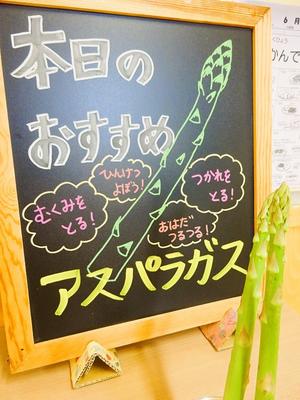 本日の
おすすめ
ひんけつ
よぼう!
むくみを
とる!
つかれを
とる!
おはだ
つるつる!
アスパラガス
6月
かんで